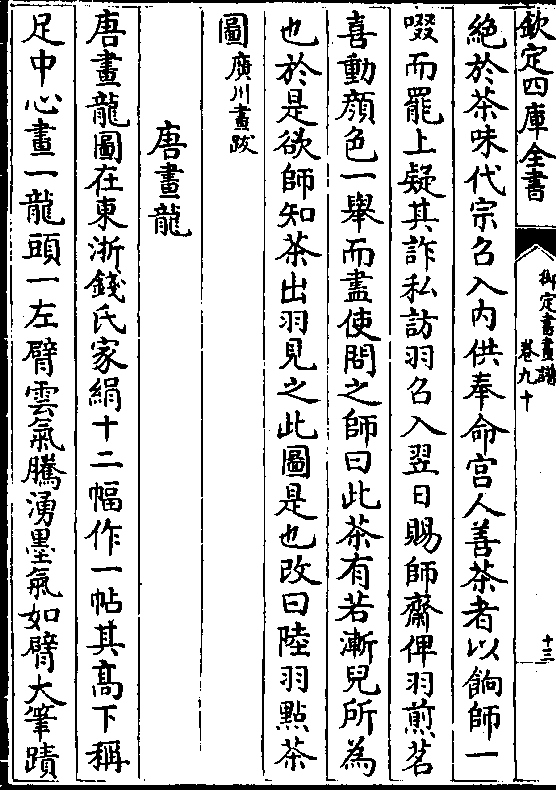 欽定四庫全書
御定書畫譜
卷九十
十三
絶於茶味代宗召入内供奉命宮人善茶者以餉師一
啜而罷上疑其詐私訪羽召入翌日賜師齋俾羽煎茗
喜動顔色一舉而盡使問之師曰此茶有若漸兒所為
也於是歎師知茶出羽見之此圖是也改曰陸羽點茶
圖廣川畫跋
唐畫龍
唐畫龍圖在東浙錢氏家絹十二幅作一帖其髙下稱
足中心畫一龍頭一左臂雲氣騰湧墨氣如臂大筆蹟